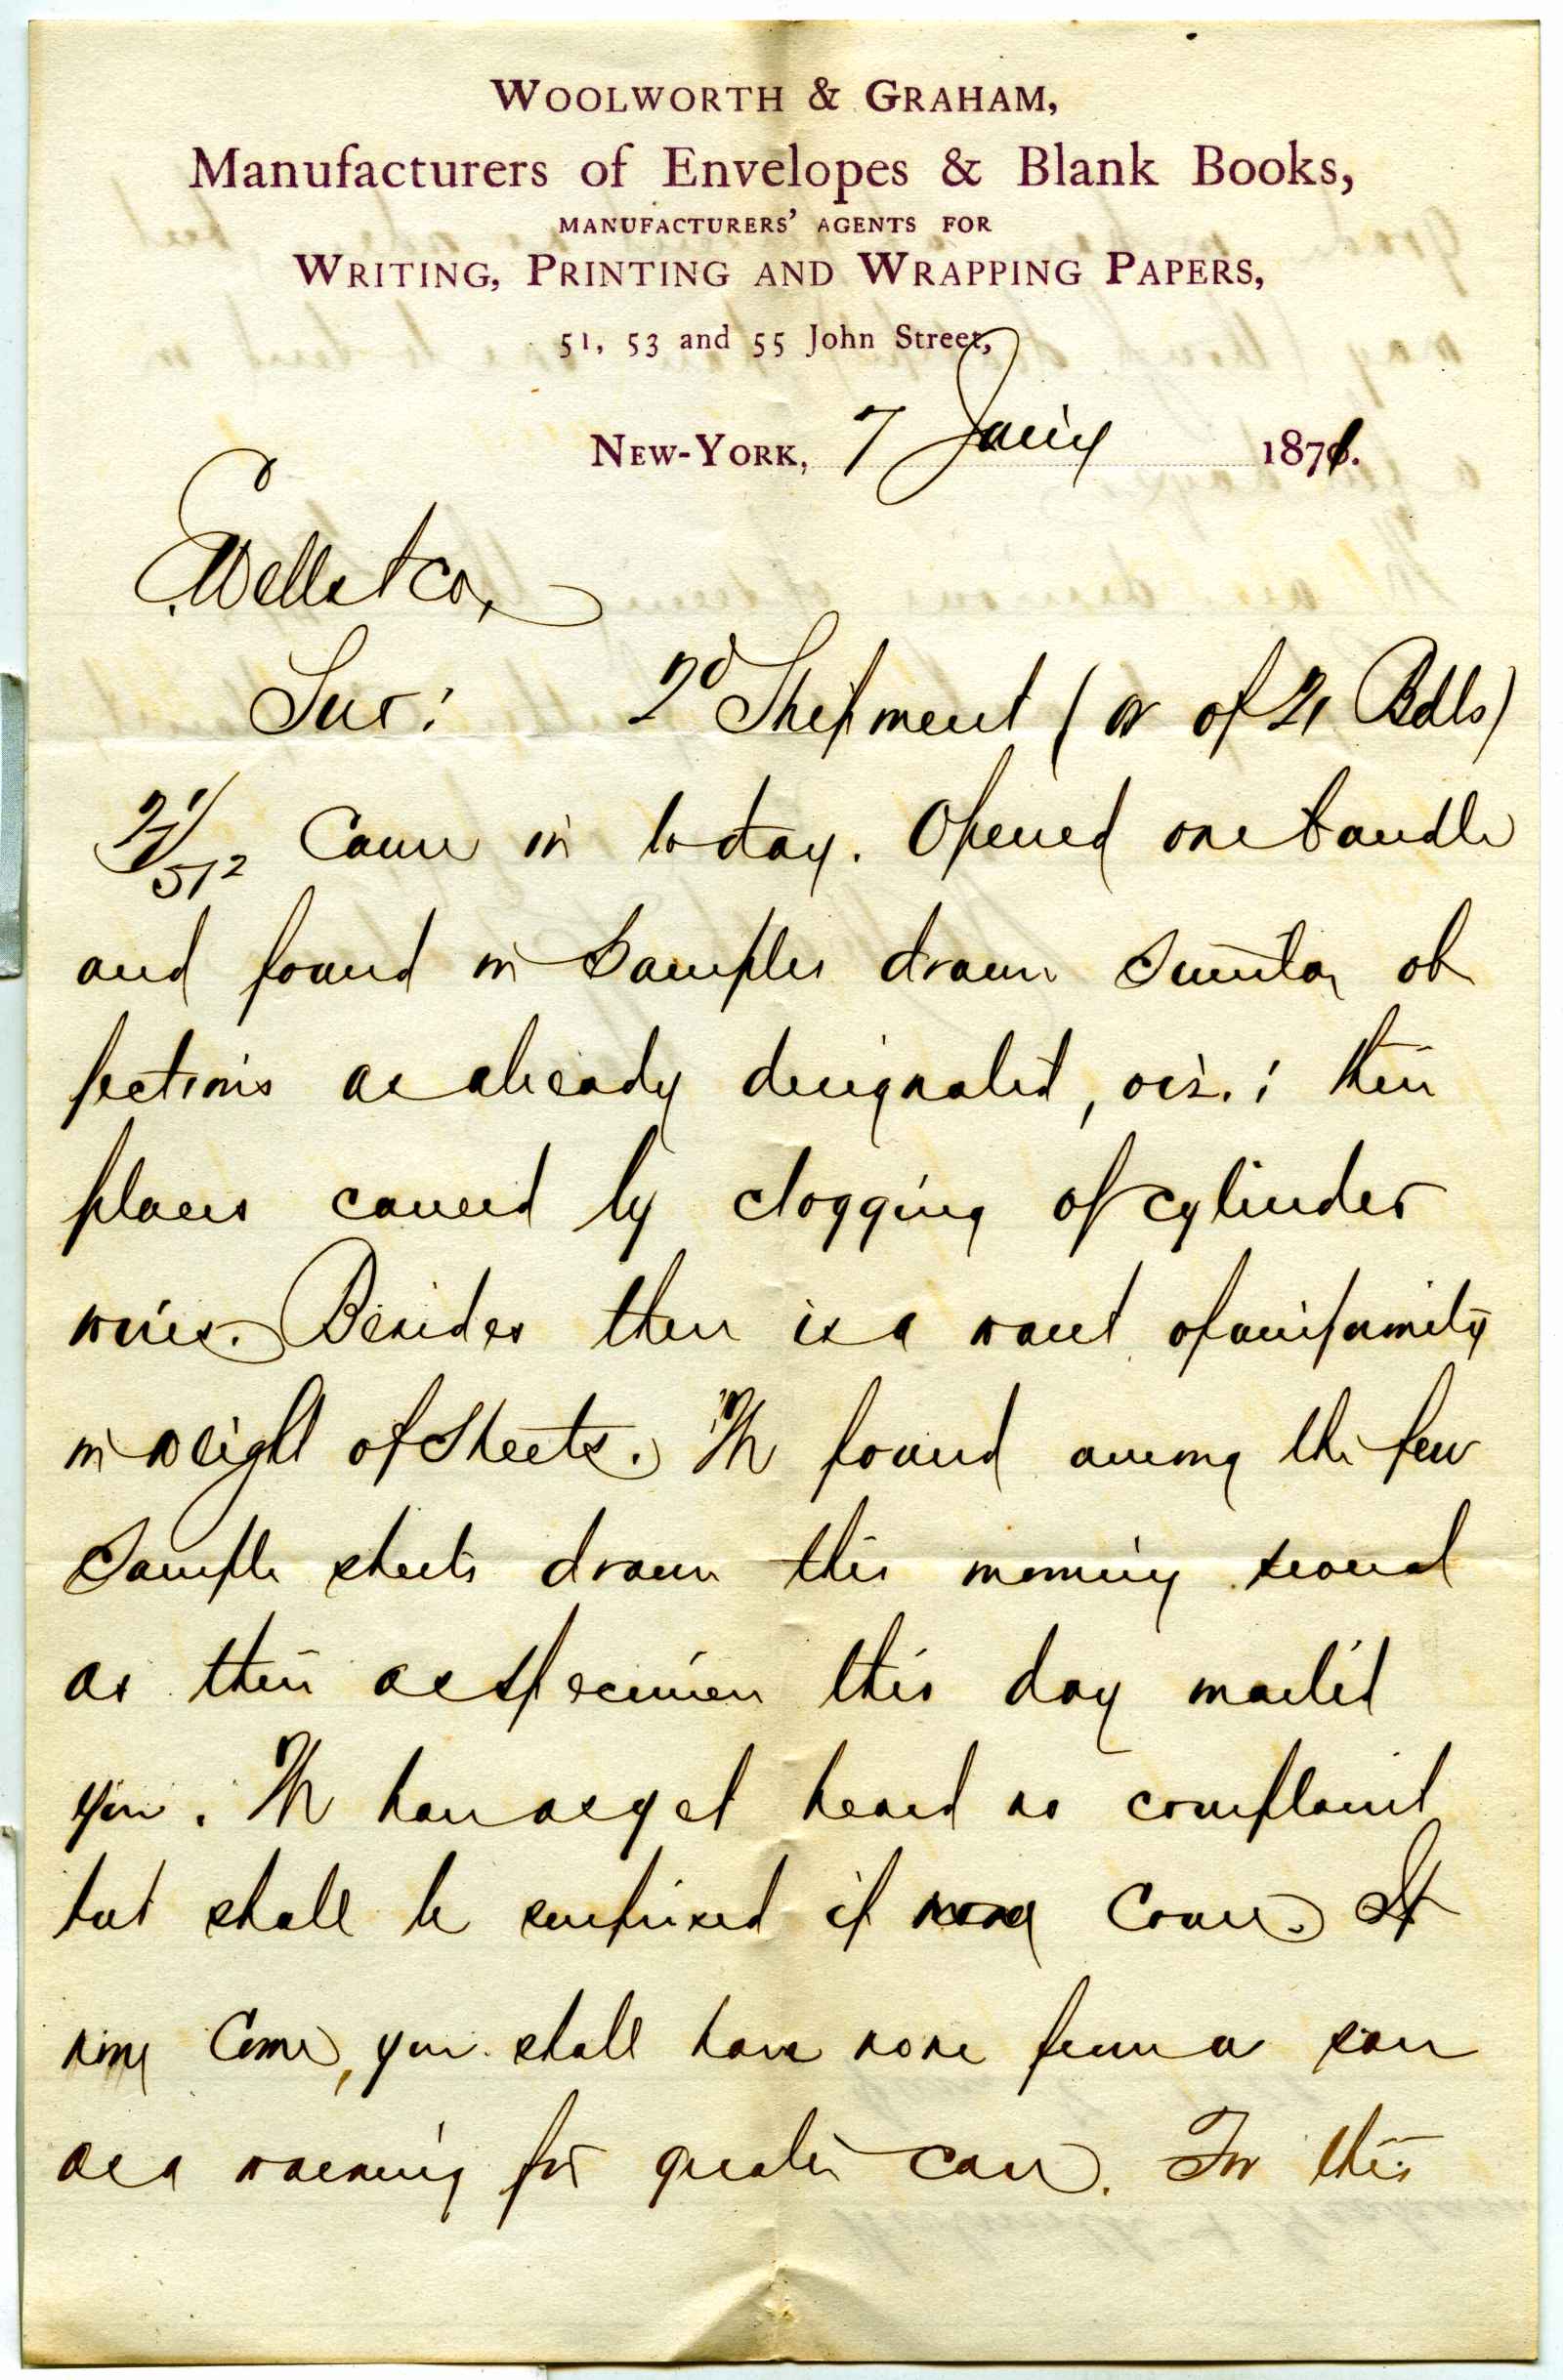 WOOLWORTH & GRAHAM,
Manufacturers of Envelopes & Blank Books,
MANUFACTURERS' AGENTS FOR
WRITING, PRINTING AND WRAPPING PAPERS,
51, 53 and 55 John Street,
NEW-YORK, 7 187
Wells & Co,
Sirs: 2d Shipment (or of 21 Bdls)
Came in today. Opened one bundle
and found in samples drawn similar ob
jections as already designated, viz.: thin
places caused by clogging of cylinder
wires. Besides there is a want of uniformity
in weight of sheets. We found among the few
sample sheets drawn this morning several
as thin as specimen this day mailed
you. We have as yet heard no complaint
but shall be surprised if none come. If
none come, you shall have none from us save
as a warning for greater care. For this